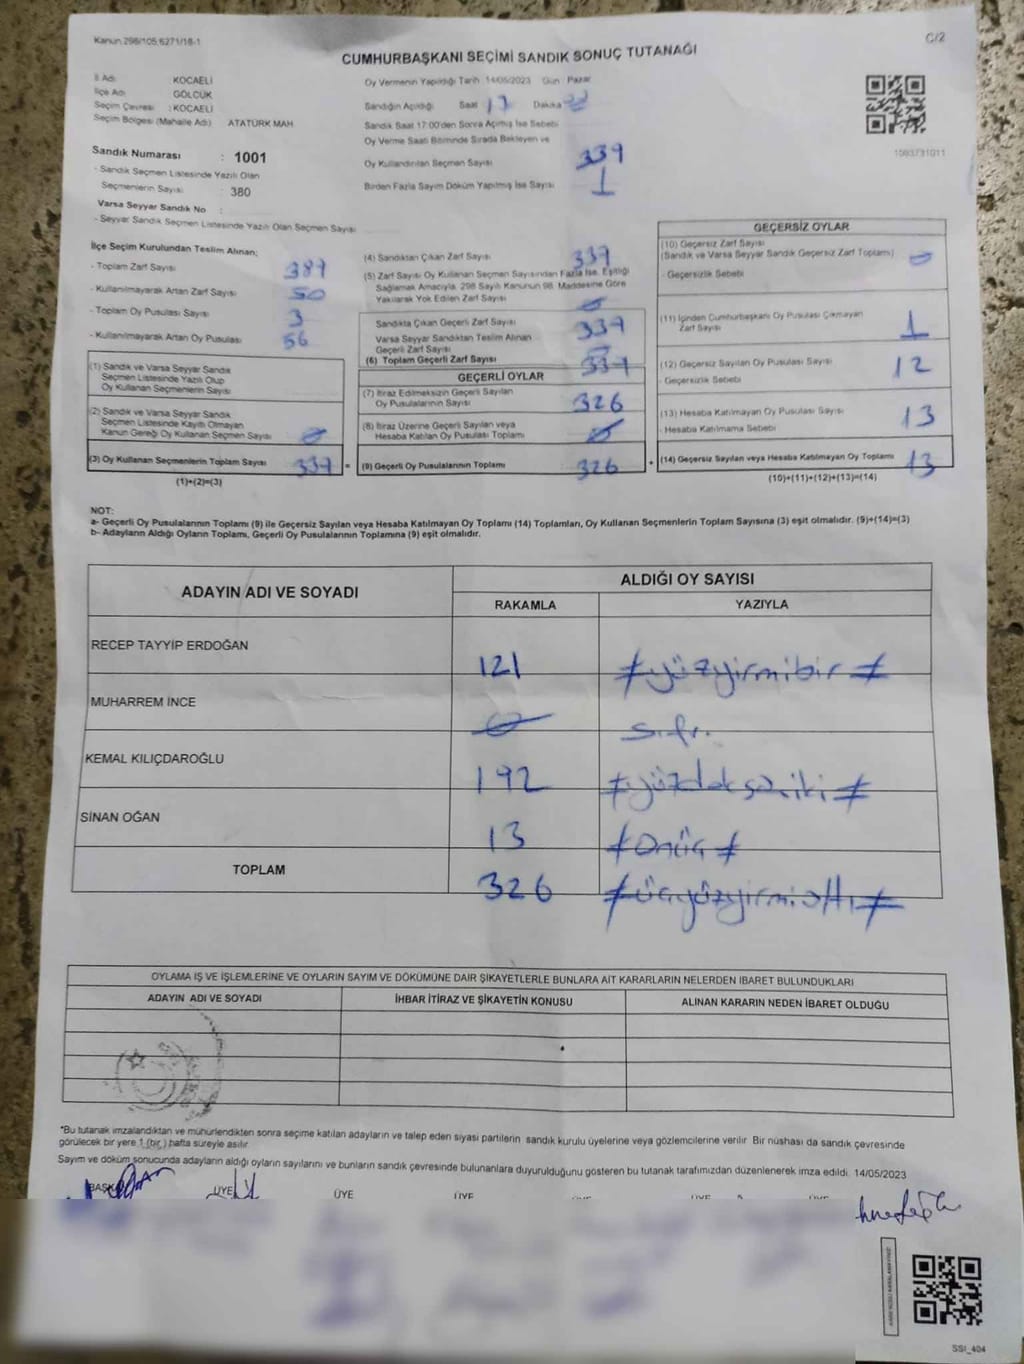 Kanun 298/105,6271/18-1
C/2
CUMHURBAŞKANI SEÇİMİ SANDIK SONUÇ TUTANAĞI
İl Adı KOCAELİ
İlçe Adı GÖLCÜK
Seçim Çevresi : KOCAELİ
Seçim Bölgesi (Mahalle Adı) ATATÜRK MAH
Sandık Numarası : 1001
- Sandık Seçmen Listesinde Yazılı Olan
Seçmenlerin Sayısı : 380
Varsa Seyyar Sandık No :
- Seyyar Sandık Seçmen Listesinde Yazılı Olan Seçmen Sayısı
Oy Vermenin Yapıldığı Tarih 14/05/2023 Gün : Pazar
Sandığın Açıldığı Saat 17 Dakika
Sandık Saat 17:00'den Sonra Açılmış İse Sebebi
Oy Verme Saati Bitiminde Sırada Bekleyen ve
Oy Kullandırılan Seçmen Sayısı 339
Birden Fazla Sayım Döküm Yapılmış İse Sayısı 1
1083731011
İlçe Seçim Kurulundan Teslim Alınan;
- Toplam Zarf Sayısı 389
- Kullanılmayarak Artan Zarf Sayısı 50
- Toplam Oy Pusulası Sayısı 3
- Kullanılmayarak Artan Oy Pusulası 56
(1) Sandık ve Varsa Seyyar Sandık
Seçmen Listesinde Yazılı Olup
Oy Kullanan Seçmenlerin Sayısı
(2) Sandık ve Varsa Seyyar Sandık
Seçmen Listesinde Kayıtlı Olmayan
Kanun Gereği Oy Kullanan Seçmen Sayısı 0
(3) Oy Kullanan Seçmenlerin Toplam Sayısı 339 =
(1)+(2)=(3)
(4) Sandıktan Çıkan Zarf Sayısı 339
(5) Zarf Sayısı Oy Kullanan Seçmen Sayısından Fazla İse, Eşitliği
Sağlamak Amacıyla, 298 Sayılı Kanunun 98. Maddesine Göre
Yakılarak Yok Edilen Zarf Sayısı
Sandıkta Çıkan Geçerli Zarf Sayısı 339
Varsa Seyyar Sandıktan Teslim Alınan
Geçerli Zarf Sayısı
(6) Toplam Geçerli Zarf Sayısı 339
GEÇERLİ OYLAR
(7) İtiraz Edilmeksizin Geçerli Sayılan
Oy Pusulalarının Sayısı 326
(8) İtiraz Üzerine Geçerli Sayılan veya
Hesaba Katılan Oy Pusulası Toplamı
(9) Geçerli Oy Pusulalarının Toplamı 326 +
GEÇERSİZ OYLAR
(10) Geçersiz Zarf Sayısı
(Sandık ve Varsa Seyyar Sandık Geçersiz Zarf Toplamı) 0
- Geçersizlik Sebebi
(11) İçinden Cumhurbaşkanı Oy Pusulası Çıkmayan
Zarf Sayısı 1
(12) Geçersiz Sayılan Oy Pusulası Sayısı 12
- Geçersizlik Sebebi
(13) Hesaba Katılmayan Oy Pusulası Sayısı 13
- Hesaba Katılmama Sebebi
(14) Geçersiz Sayılan veya Hesaba Katılmayan Oy Toplamı 13
(10)+(11)+(12)+(13)=(14)
NOT:
a- Geçerli Oy Pusulalarının Toplamı (9) ile Geçersiz Sayılan veya Hesaba Katılmayan Oy Toplamı (14) Toplamları, Oy Kullanan Seçmenlerin Toplam Sayısına (3) eşit olmalıdır. (9)+(14)=(3)
b- Adayların Aldığı Oyların Toplamı, Geçerli Oy Pusulalarının Toplamına (9) eşit olmalıdır.
ADAYIN ADI VE SOYADI
ALDIĞI OY SAYISI
RAKAMLA YAZIYLA
RECEP TAYYİP ERDOĞAN 121 #yüzyirmibir#
MUHARREM İNCE 0 sıfır.
KEMAL KILIÇDAROĞLU 192 #yüzdoksaniki#
SİNAN OĞAN 13 #onüç#
TOPLAM 326 #üçyüzyirmialtı#
OYLAMA İŞ VE İŞLEMLERİNE VE OYLARIN SAYIM VE DÖKÜMÜNE DAİR ŞİKAYETLERLE BUNLARA AİT KARARLARIN NELERDEN İBARET BULUNDUKLARI
ADAYIN ADI VE SOYADI İHBAR İTİRAZ VE ŞİKAYETİN KONUSU ALINAN KARARIN NEDEN İBARET OLDUĞU
*Bu tutanak imzalandıktan ve mühürlendikten sonra seçime katılan adayların ve talep eden siyasi partilerin sandık kurulu üyelerine veya gözlemcilerine verilir. Bir nüshası da sandık çevresinde
görülecek bir yere 1 (bir) hafta süreyle asılır.
Sayım ve döküm sonucunda adayların aldığı oyların sayılarını ve bunların sandık çevresinde bulunanlara duyurulduğunu gösteren bu tutanak tarafımızdan düzenlenerek imza edildi. 14/05/2023
BAŞKAN ÜYE ÜYE ÜYE ÜYE ÜYE
SSİ_404